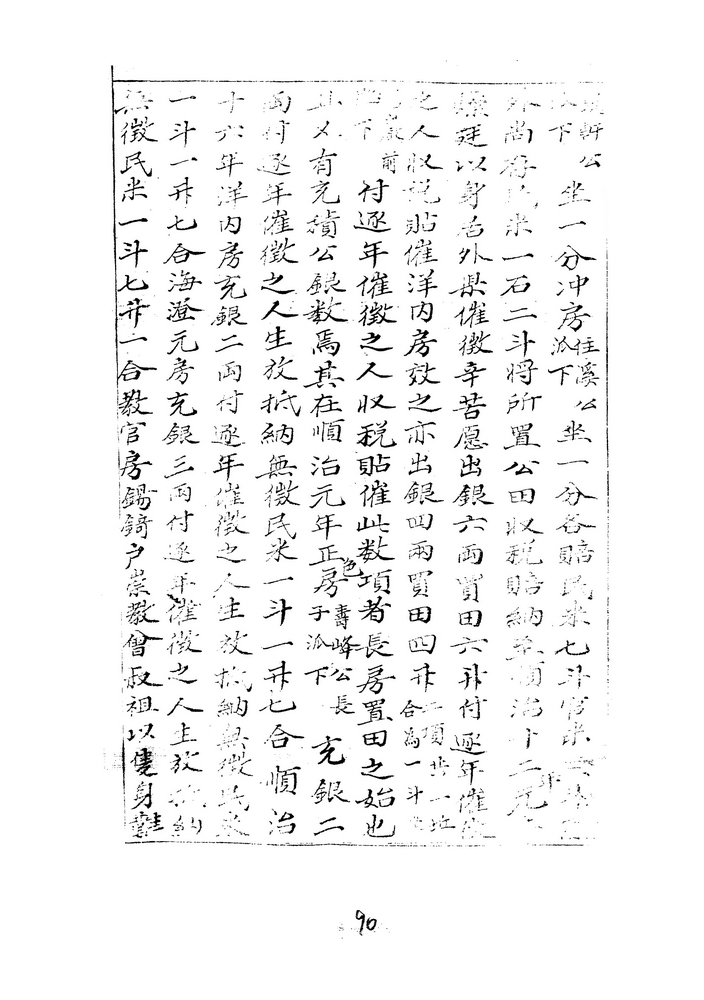 軒公派下坐一分冲房住溪公派下坐一分各賠民米七斗官米
外尚存民米一石二斗將所置公田收税賠納至順治十二年元
廷以身居外県催徵辛苦愿出銀六両買田六斗付逐年催徵
之人収税貼催洋内房效之亦出銀四両買田四斗二項共一坵合為一斗
前付逐年催徵之人収税貼催此数項者長房置田之始也
又有充積公銀数焉其在順治元年正色房壽峰公長子派下充銀二
両付逐年催徵之人生放抵納無徵民米一斗一升七合順治
十六年洋内房充銀二両付逐年催徵之人生放抵納無徵民米
一斗一升七合海澄元房充銀三両付逐年催徵之人生放抵納
無徵民米一斗七升一合教官房錫錡户崇教曾叔祖以隻身
90